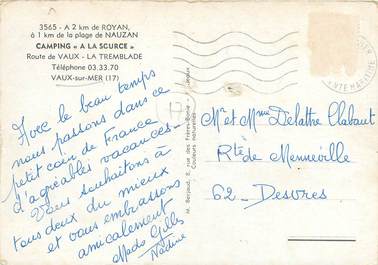 3565 - A 2 km de ROYAN,
à 1 km de la plage de NAUZAN
CAMPING « A LA SOURCE »
Route de VAUX - LA TREMBLADE
Téléphone 03.33.70
VAUX-sur-MER (17)
Avec le beau temps
nous passons dans ce
petit coin de France
d'agréables vacances -
Vous souhaitons à
tous deux du mieux
et vous embrassons
amicalement
Mado Gilles
Nadine
17
M. Berjaud, 5, rue des Frères
Couleurs naturelles
Mr et Mme Delattre Clabaut
Rte de Menneville
62 - Desvres